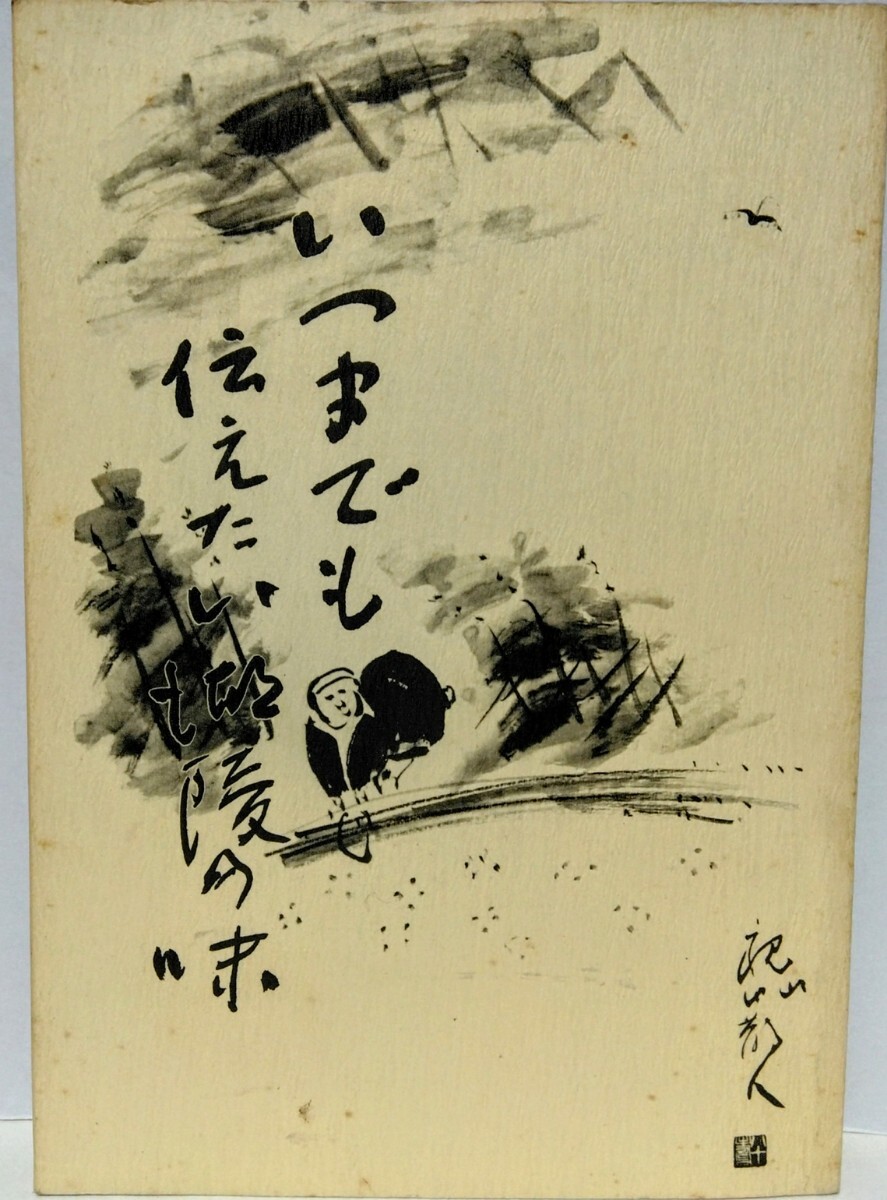 いつまでも
伝えたい湖陵の味
山散人